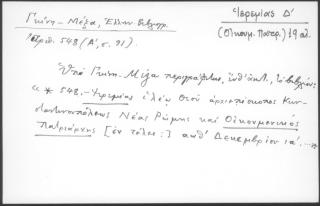 Γκίνη - Μέξα, Ἑλλην. Βιβλιογρ.
Ἱερεμίας Δ'
Ἀριθ. 548 (Α', σ. 91)
(Οἰκουμ. Πατρ.) 19 αἰ.
Ὑπὸ Γκίνη - Μέξα περιγράφεται,
« * 548. - Ἱερεμίας ἐλέῳ Θεοῦ ἀρχιεπίσκοπος Κων-
σταντινουπόλεως Νέας Ῥώμης καὶ Οἰκουμενικὸς
Πατριάρχης [ἐν τέλει:] Δεκεμβρίου ια'.